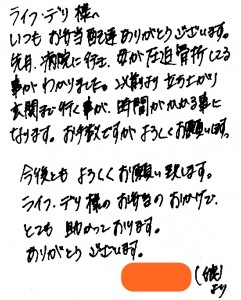 ライフ・デリ 様へ
いつも お弁当配達 ありがとう ございます。
先月、病院に行き、母が 圧迫骨折してる
事が わかりました。以前より 立ち上がり
玄関まで 行く事が、時間がかかる事に
なります。お手数ですが よろしくお願います。
今後とも よろしく お願い致します。
ライフ・デリ 様の お弁当の おかげで、
とても 助かって おります。
ありがとう ございます。
より